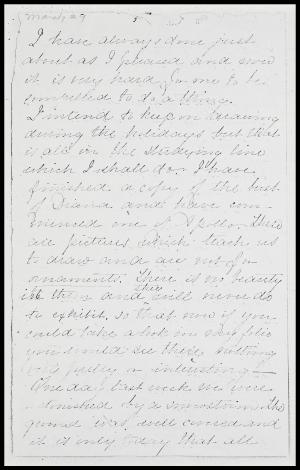 March 29
I have always done just
about as I pleased and now
it is very hard for me to be
compelled to do a thing.
I intend to keep on drawing
during the holidays but that
is all in the studying line
which I shall do. I have
finished a copy of the bust
of Diana and have com-
menced one of Apollo. these
are pictures which teach us
to draw and are not for
ornaments. There is no beauty
in them and they will never do
to exhibit. so that now if you
could take a look in my folio
you would see there nothing
very pretty or interesting.
One day last week we were
astonished by a snowstorm the
ground was well covered and
it is only today that all